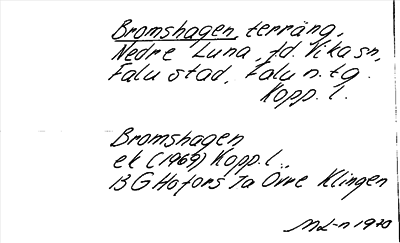 Bromshagen, terräng,
Nedre Luna, fd. Vika sn,
Falu stad, Falu n. tg.
Kopp. l.
Bromshagen
ek (1969) Kopp. l.
13 G Hofors Ja Övre Klingen
ML-n 1970